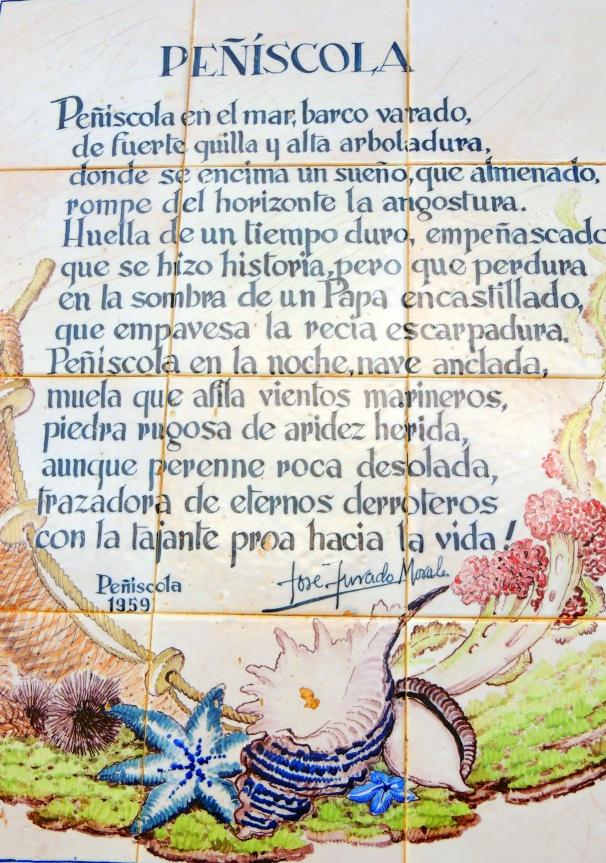 PEÑÍSCOLA
Peñiscola en el mar, barco varado,
de fuerte quilla y alta arboladura,
donde se encima un sueño, que almenado,
rompe del horizonte la angostura.
Huella de un tiempo duro, empeñascado
que se hizo historia, pero que perdura
en la sombra de un Papa encastillado,
que empavesa la recia escarpadura.
Peñiscola en la noche, nave anclada,
muela que afila vientos marineros,
piedra rugosa de aridez herida,
aunque perenne roca desolada,
trazadora de eternos derroteros
con la tajante proa hacia la vida!
José Jurado Morales
Peñiscola
1959